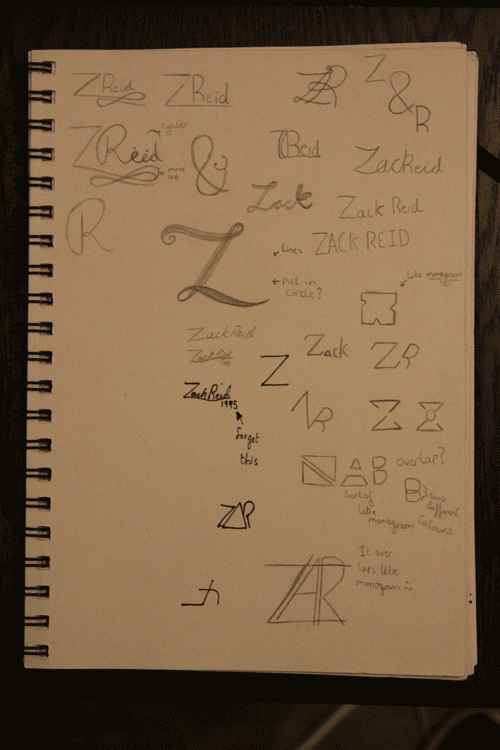 ZReid
ZReid
ZR
Z
&
R
ZReid
tighter
move
up
&
ZReid
ZacReid
R
Zack
Zack Reid
Z
lines
ZACK REID
put in
circle?
like monogram
Zack Reid
Zack Reid
Z
Zack
ZR
Zack Reid
1995
forget
this
ZR
AB
overlap?
Sort of
like
monogram
B
two
different
colours
ZAR
ZAR
It over
laps like
monogram